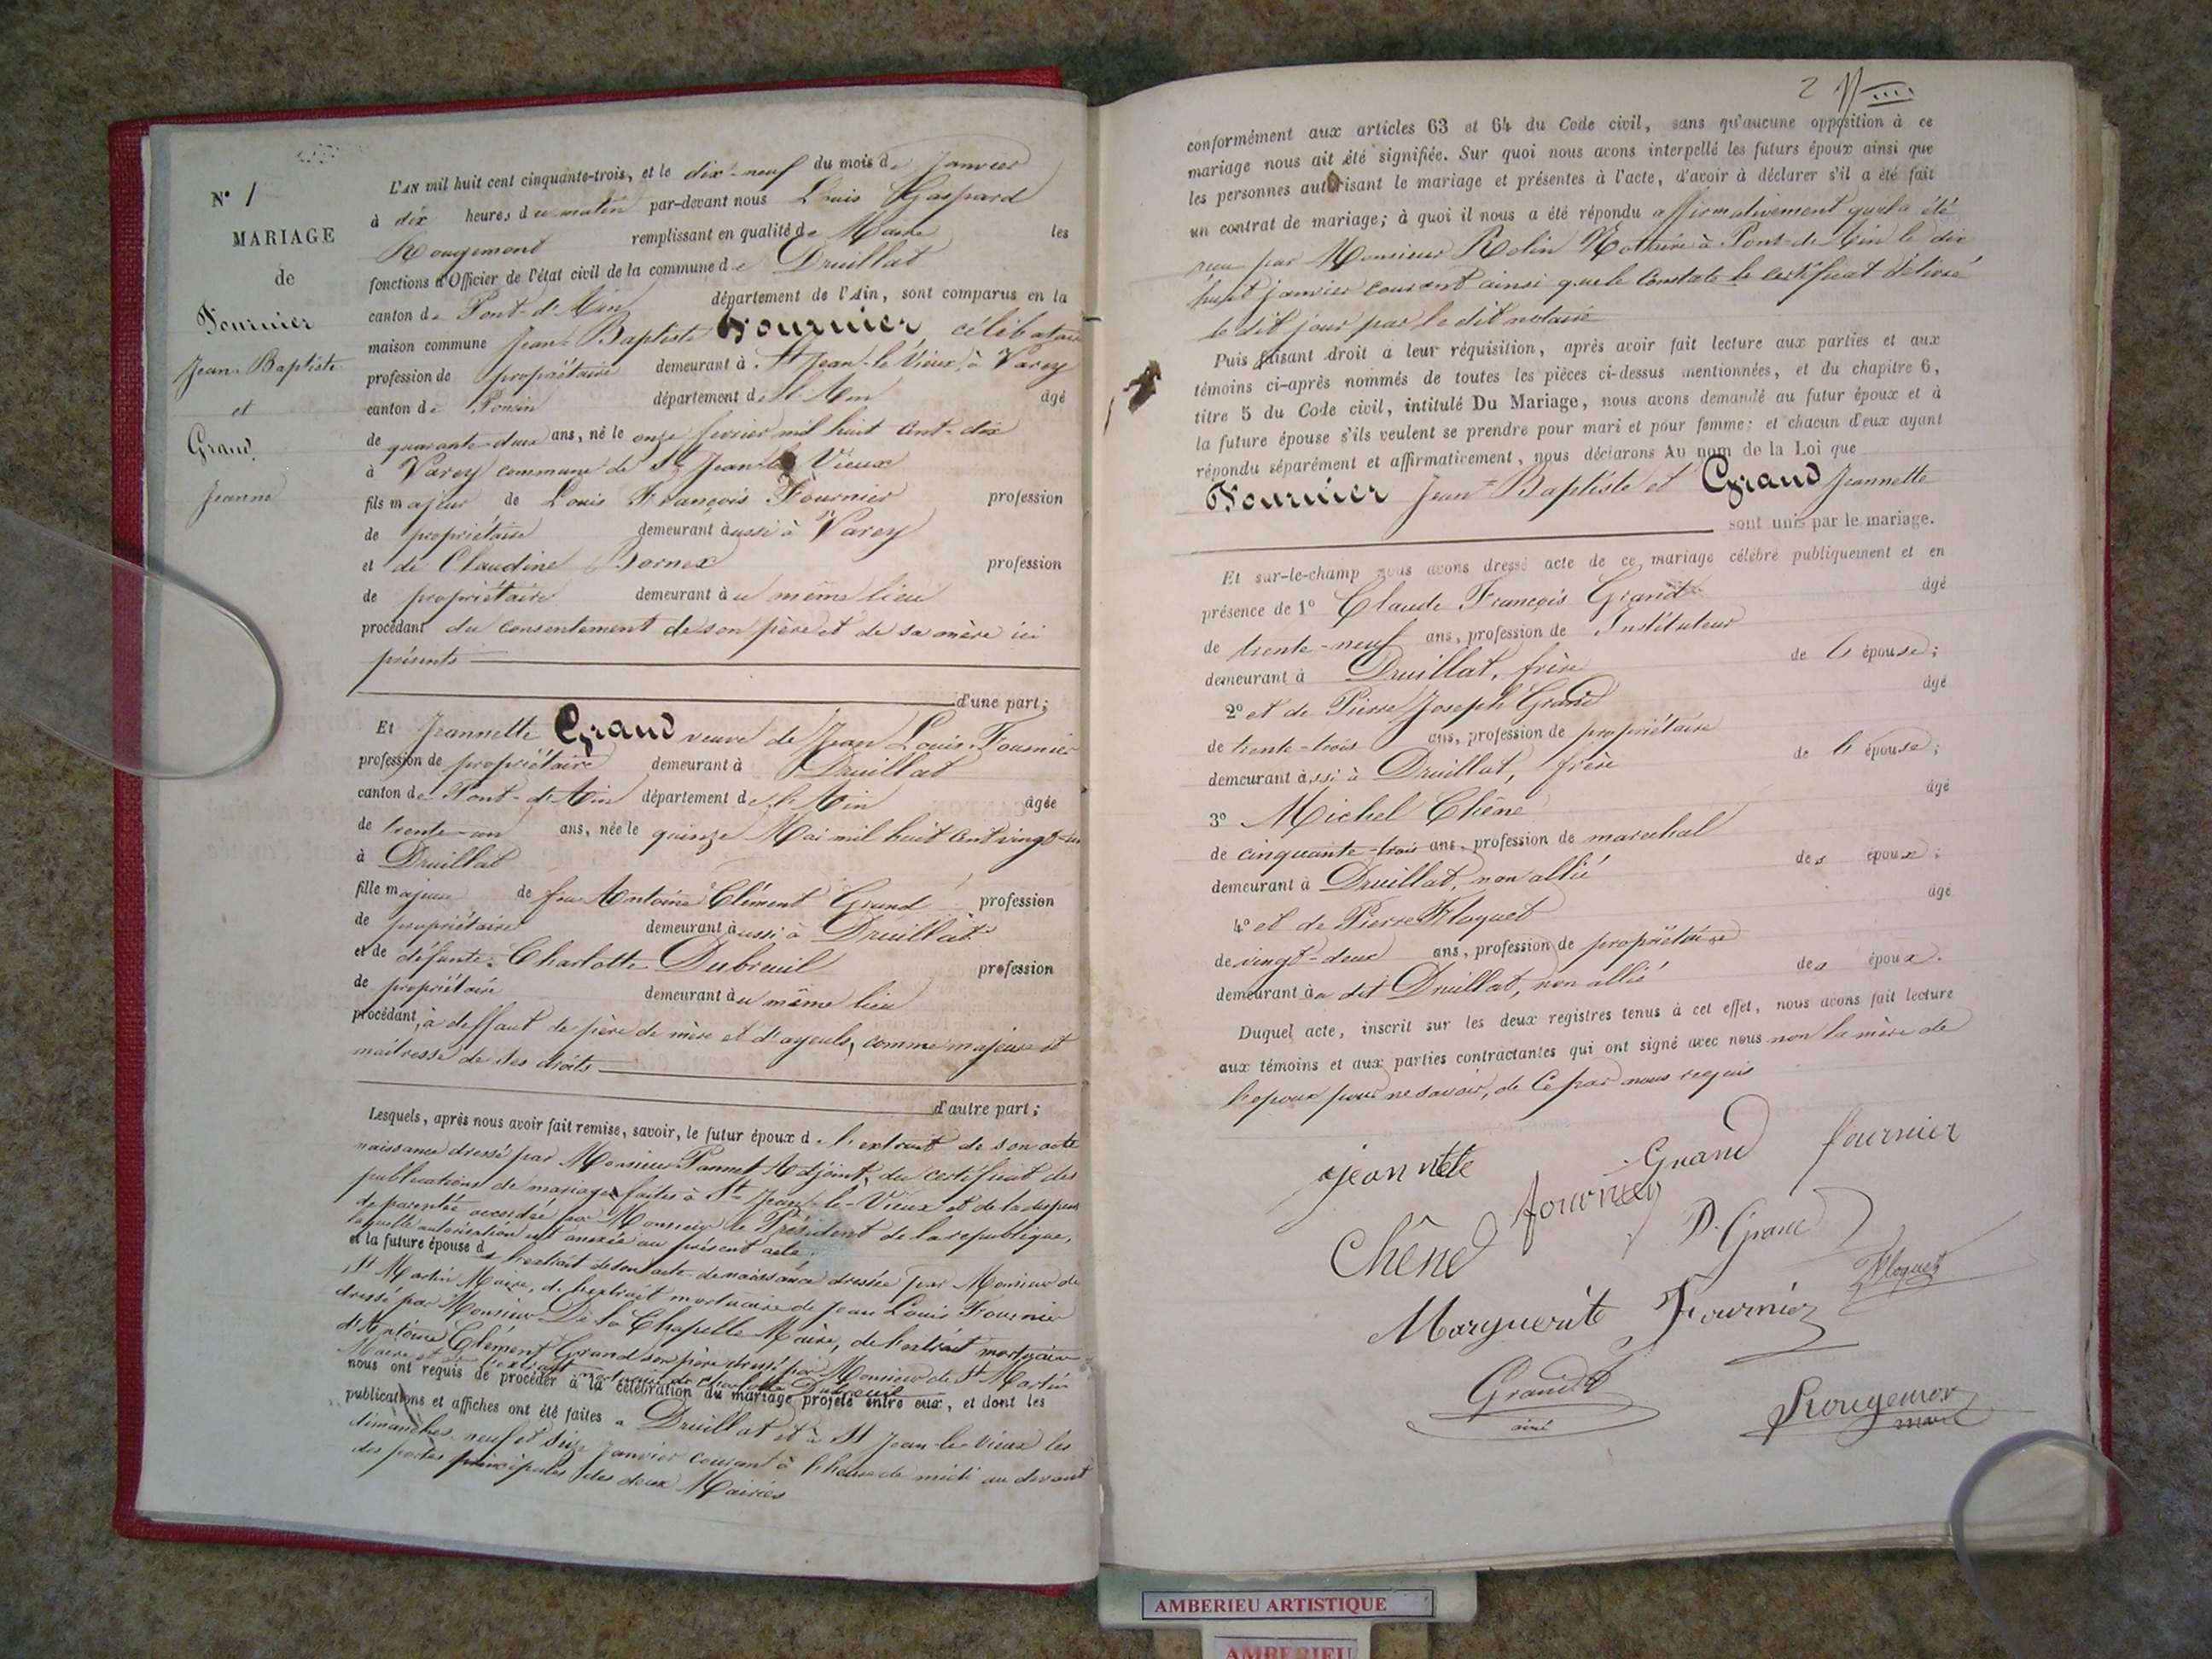 N° 1
MARIAGE
de
Fournier
Jean-Baptiste
et
Grand
Jeanne
L'AN mil huit cent cinquante-trois, et le dix-neuf du mois de Janvier
à dix heures du matin par-devant nous Louis Gaspard
Rougemont remplissant en qualité de Maire les
fonctions d'Officier de l'état civil de la commune de Druillat
canton de Pont-d'Ain département de l'Ain, sont comparus en la
maison commune Jean-Baptiste Fournier célibataire
profession de propriétaire demeurant à St Jean-le-Vieux, à Varey
canton de Poncin département de l'Ain âgé
de quarante-deux ans, né le onze fevrier mil huit cent-dix
à Varey commune de St Jean-le Vieux
fils majeur de Louis François Fournier profession
de propriétaire demeurant aussi à Varey
et de Claudine Bornex profession
de propriétaire demeurant au même lieu
procédant du consentement de son père et de sa mère ici
présents
d'une part;
Et Jeannette Grand veuve de Jean Louis Fournier
profession de propriétaire demeurant à Druillat
canton de Pont-d'Ain département de l'Ain âgée
de trente-un ans, née le quinze Mai mil huit cent vingt-un
à Druillat
fille majeure de feu Antoine Clément Grand profession
de propriétaire demeurant aussi à Druillat
et de défunte Charlotte Dubreuil profession
de propriétaire demeurant au même lieu
procédant, à deffaut de père de mère et d'ayeuls, comme majeure et
maîtresse de ses droits
d'autre part;
Lesquels, après nous avoir fait remise, savoir, le futur époux de l'extrait de son acte
naissance dressé par Monsieur Pannet Adjoint, du certificat des
publications de mariage faites à St Jean-le-Vieux et de la dispense
de parenté accordée par Monsieur le Président de la republique,
laquelle autorisation est anexée au présent acte.
et la future épouse de l'extrait de son acte de naissance dressée par Monsieur de
St Martin Maire, de l'extrait mortuaire de Jean Louis Fournier
dressé par Monsieur De la Chapelle Maire, de l'extrait mortuaire
d'Antoine Clément Grand son père dressé par Monsieur de St Martin
Maire et de l'extrait mortuaire de Charlotte Dubreuil
nous ont requis de procéder à la célébration du mariage projeté entre eux, et dont les
publications et affiches ont été faites à Druillat et à St Jean-le-Vieux les
dimanches neuf et seize Janvier courant à l'heure de midi au devant
des portes principales des deux Mairies
2
conformément aux articles 63 et 64 du Code civil, sans qu'aucune opposition à ce
mariage nous ait été signifiée. Sur quoi nous avons interpellé les futurs époux ainsi que
les personnes autorisant le mariage et présentes à l'acte, d'avoir à déclarer s'il a été fait
un contrat de mariage; à quoi il nous a été répondu affirmativement qu'il a été
reçu par Monsieur Rolin Notaire à Pont-de-l'Ain le dix
huit janvier courant ainsi que le constate le certificat délivré
le dit jour par le dit notaire
Puis faisant droit à leur réquisition, après avoir fait lecture aux parties et aux
témoins ci-après nommés de toutes les pièces ci-dessus mentionnées, et du chapitre 6,
titre 5 du Code civil, intitulé Du Mariage, nous avons demandé au futur époux et à
la future épouse s'ils veulent se prendre pour mari et pour femme; et chacun d'eux ayant
répondu séparément et affirmativement, nous déclarons Au nom de la Loi que
Fournier Jean-Baptiste et Grand Jeannette
sont unis par le mariage.
Et sur-le-champ nous avons dressé acte de ce mariage célébré publiquement et en
présence de 1° Claude François Grand âgé
de trente-neuf ans, profession de Instituteur
demeurant à Druillat, frère de l'épouse;
2° et de Pierre Joseph Grand âgé
de trente-trois ans, profession de propriétaire
demeurant aussi à Druillat, frère de l'épouse;
3° Michel Chêne âgé
de cinquante-trois ans, profession de marechal
demeurant à Druillat, non allié des époux;
4° et de Pierre Floquet âgé
de vingt-deux ans, profession de propriétaire
demeurant au dit Druillat, non allié des époux.
Duquel acte, inscrit sur les deux registres tenus à cet effet, nous avons fait lecture
aux témoins et aux parties contractantes qui ont signé avec nous non la mère de
l'epoux pour ne savoir, de ce par nous requis
jean nete Grand fournier
fournier
Chêne P. Grand
Floquet
Marguerite Fournier
Grand
ainé
Rougemont
maire
AMBERIEU ARTISTIQUE
AMBERIEU